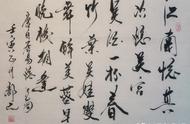 江南憶其
次憶吴宫
吴酒一杯春
竹葉吴娃雙
舞醉芙蓉早
晚復相逢